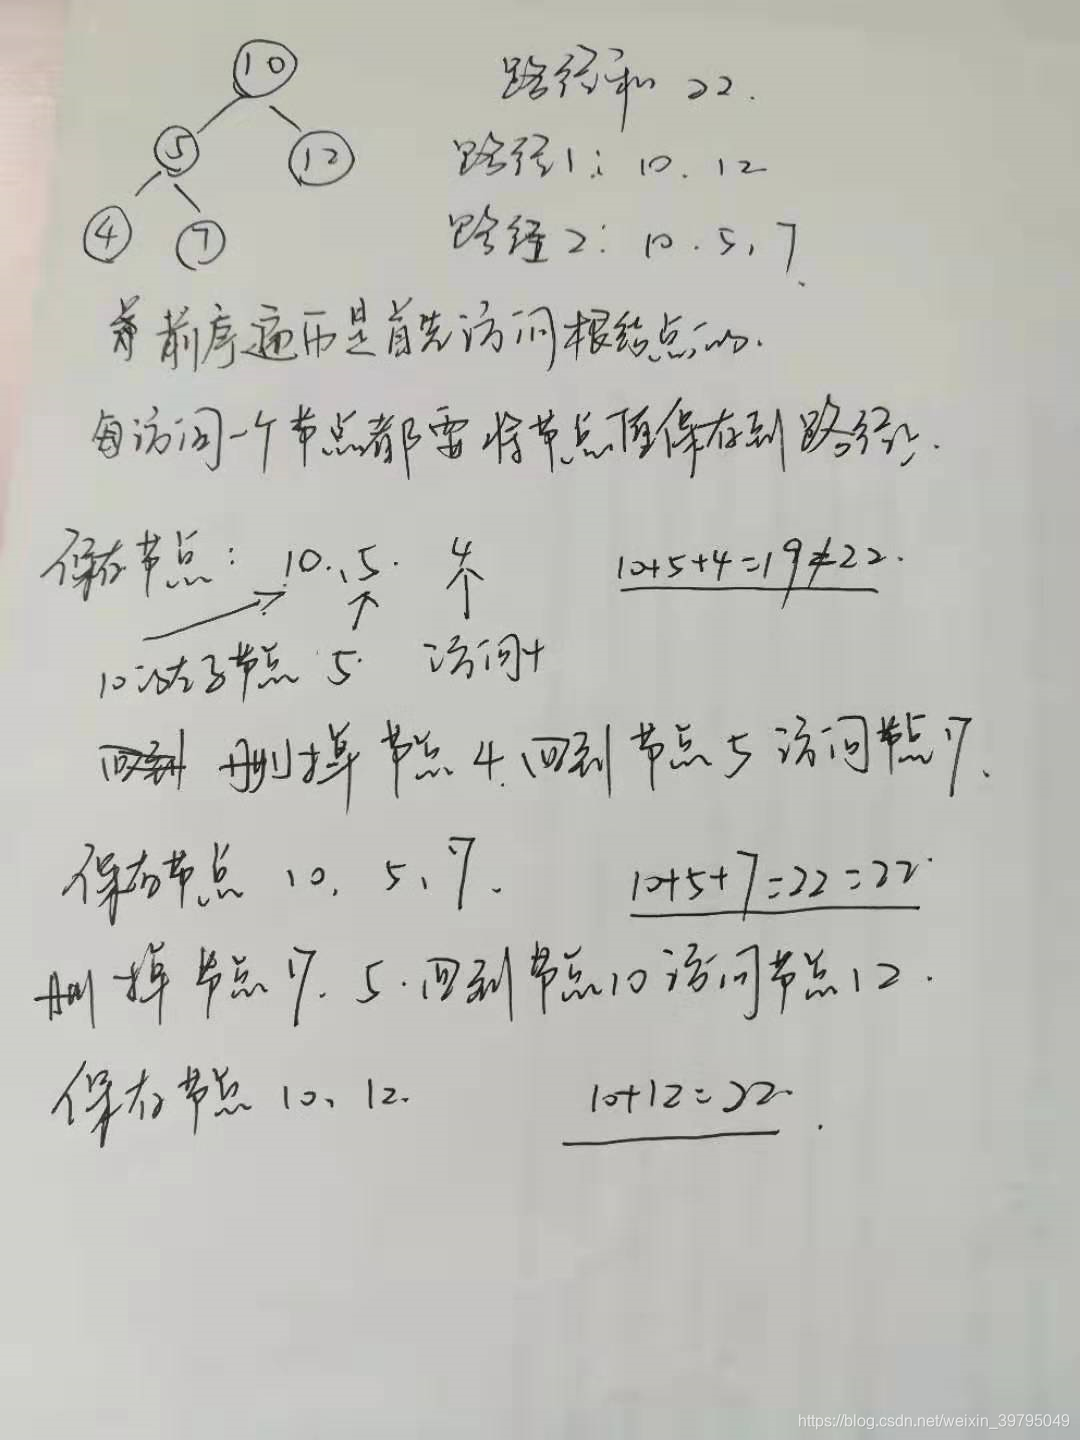 10
路径和 22.
5
12
路径1: 10. 12
4
7
路径2: 10. 5, 7.
前序遍历是首先访问根结点的.
每访问一个节点都要将节点值保存到路径.
保存节点: 10、5. 4
10+5+4=19≠22.
10 左子节点 5. 访问4
回到 删掉节点4. 回到节点5访问节点7.
保存节点 10、5、7.
10+5+7=22=22.
删掉节点7. 5. 回到节点10访问节点12.
保存节点 10、12.
10+12=22.
https://blog.csdn.net/weixin_39795049